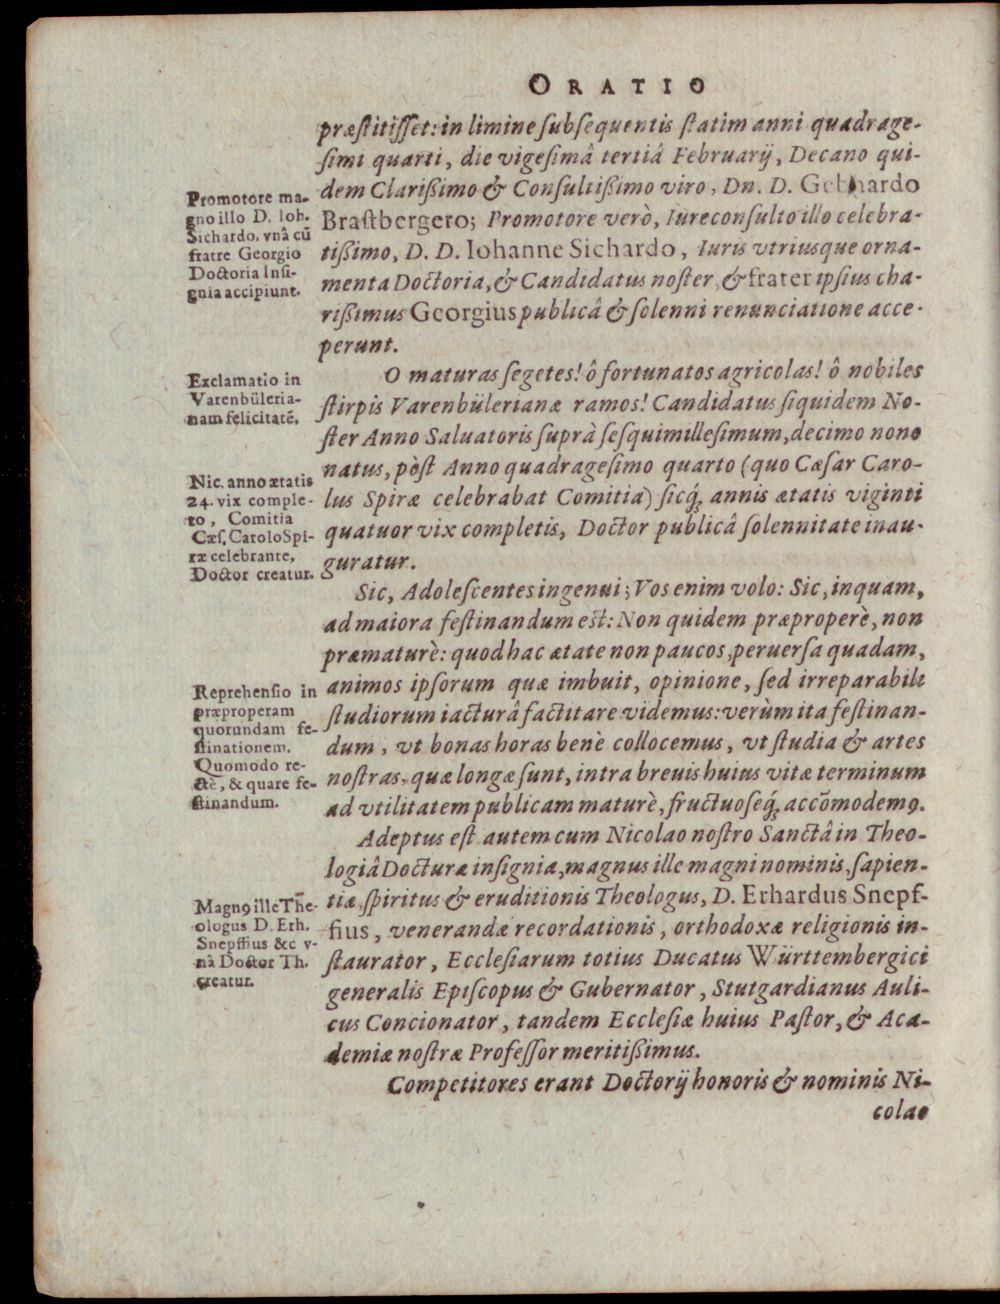 ORATIO
præstitisset: in limine subsequentis statim anni quadrage-
simi quarti, die vigesimâ tertiâ Februarij, Decano qui-
dem Clarißimo & Consultißimo viro, Dn. D. Gebhardo
Brastbergero; Promotore verò, Iureconsulto illo celebra-
tißimo, D. D. Iohanne Sichardo, Iuris vtriusque orna-
menta Doctoria, & Candidatus noster, & frater ipsius cha-
rißimus Georgius publicâ & solenni renunciatione acce-
perunt.
Promotore ma-
gno illo D. Ioh.
Sichardo, vnâ cũ
fratre Georgio
Doctoria Insi-
gnia accipiunt.
O maturas segetes! ô fortunatos agricolas! ô nobiles
stirpis Varenbülerianæ ramos! Candidatus siquidem No-
ster Anno Saluatoris suprà sesquimillesimum, decimo nono
natus, pòst Anno quadragesimo quarto (quo Cæsar Caro-
lus Spiræ celebrabat Comitia) sicq́; annis ætatis viginti
quatuor vix completis, Doctor publicâ solennitate inau-
guratur.
Exclamatio in
Varenbüleria-
nam felicitatẽ.
Nic. anno ætatis
24. vix comple-
to, Comitia
Cæs. Carolo Spi-
ræ celebrante,
Doctor creatur.
Sic, Adolescentes ingenui; Vos enim volo: Sic, inquam,
ad maiora festinandum est: Non quidem præproperè, non
præmaturè: quod hac ætate non paucos, peruersa quadam,
animos ipsorum quæ imbuit, opinione, sed irreparabili
studiorum iacturâ factitare videmus: verùm ita festinan-
dum, vt bonas horas benè collocemus, vt studia & artes
nostras, quæ longæ sunt, intra breuis huius vitæ terminum
ad vtilitatem publicam maturè, fructuoseq́; accõmodemꝰ.
Reprehensio in
præproperam
quorundam fe-
stinationem.
Quomodo re-
ctè, & quare fe-
stinandum.
Adeptus est autem cum Nicolao nostro Sanctâ in Theo-
logiâ Docturæ insignia, magnus ille magni nominis, sapien-
tiæ, spiritus & eruditionis Theologus, D. Erhardus Snepf-
fius, venerandæ recordationis, orthodoxæ religionis in-
staurator, Ecclesiarum totius Ducatus Württembergici
generalis Episcopus & Gubernator, Stutgardianus Auli-
cus Concionator, tandem Ecclesiæ huius Pastor, & Aca-
demiæ nostræ Professor meritißimus.
Magnꝰ ille The-
ologus D. Erh.
Snepffius &c v-
nà Doctor Th.
creatur.
Competitores erant Doctorij honoris & nominis Ni-
colao